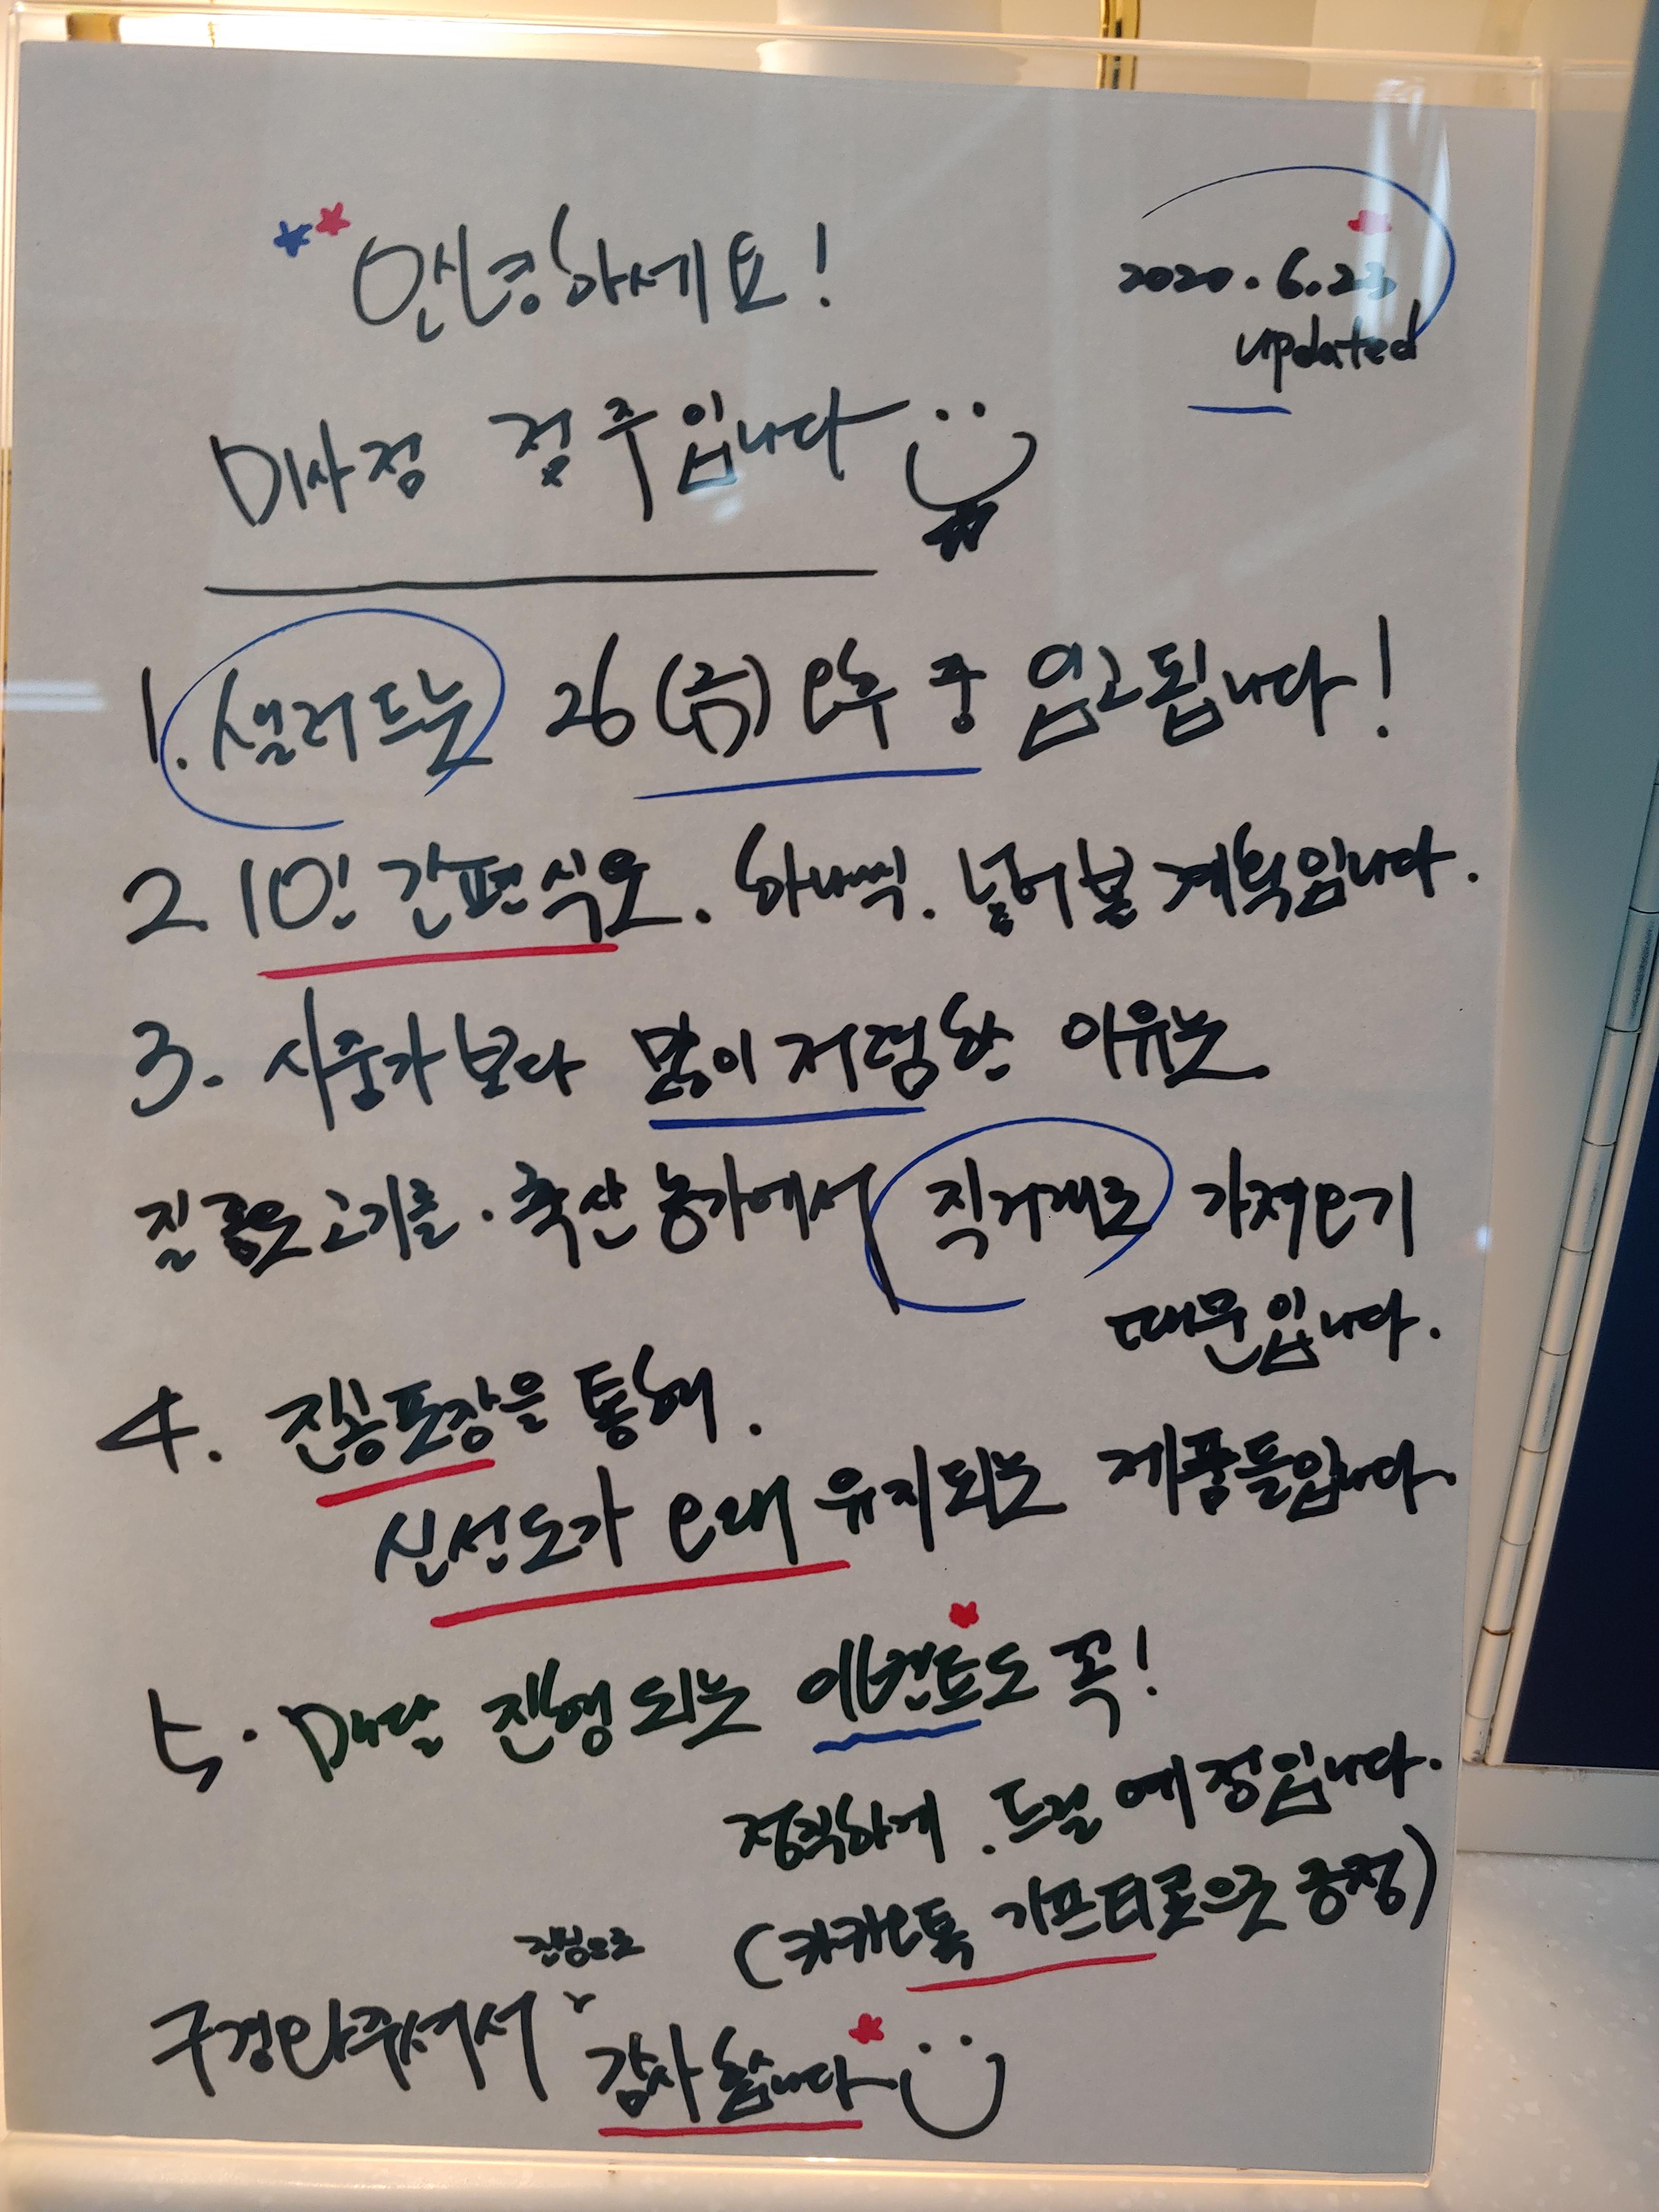 안녕하세요!
2020.6.23
updated
미사점 점주입니다
1. 샐러드는 26(금) 오후 중 입고됩니다!
2. 1인 간편식은. 하나씩. 넣어볼 계획입니다.
3. 시중가보다 많이 저렴한 이유는.
질 좋은 고기를. 축산 농가에서 직거래로 가져오기
때문입니다.
4. 진공포장을 통해.
신선도가 오래 유지되는 제품들입니다.
5. 매달 진행되는 이벤트도 꼭!
정확하게. 드릴 예정입니다.
(카카오톡 기프티콘으로 증정)
진심으로
구경와주셔서 감사합니다